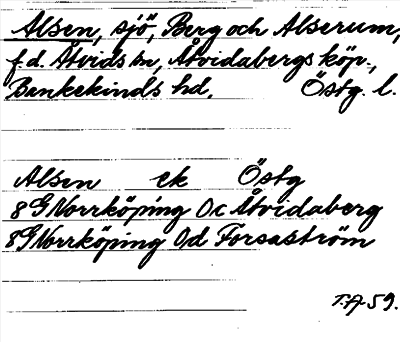 Alsen, sjö, Berg och Alserum,
f.d. Åtvids sn, Åtvidabergs köp.,
Bankekinds hd. Östg. l.
Alsen ek Östg
8G Norrköping 0c Åtvidaberg
8G Norrköping 0d Forsaström
T.A-59.